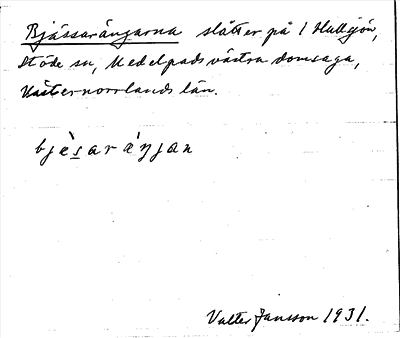 Bjässarängarna slåtter på 1 Hullsjön,
Stöde sn, Medelpads västra domsaga,
Västernorrlands län.
bjèsaráŋjan
Valter Jansson 1931.